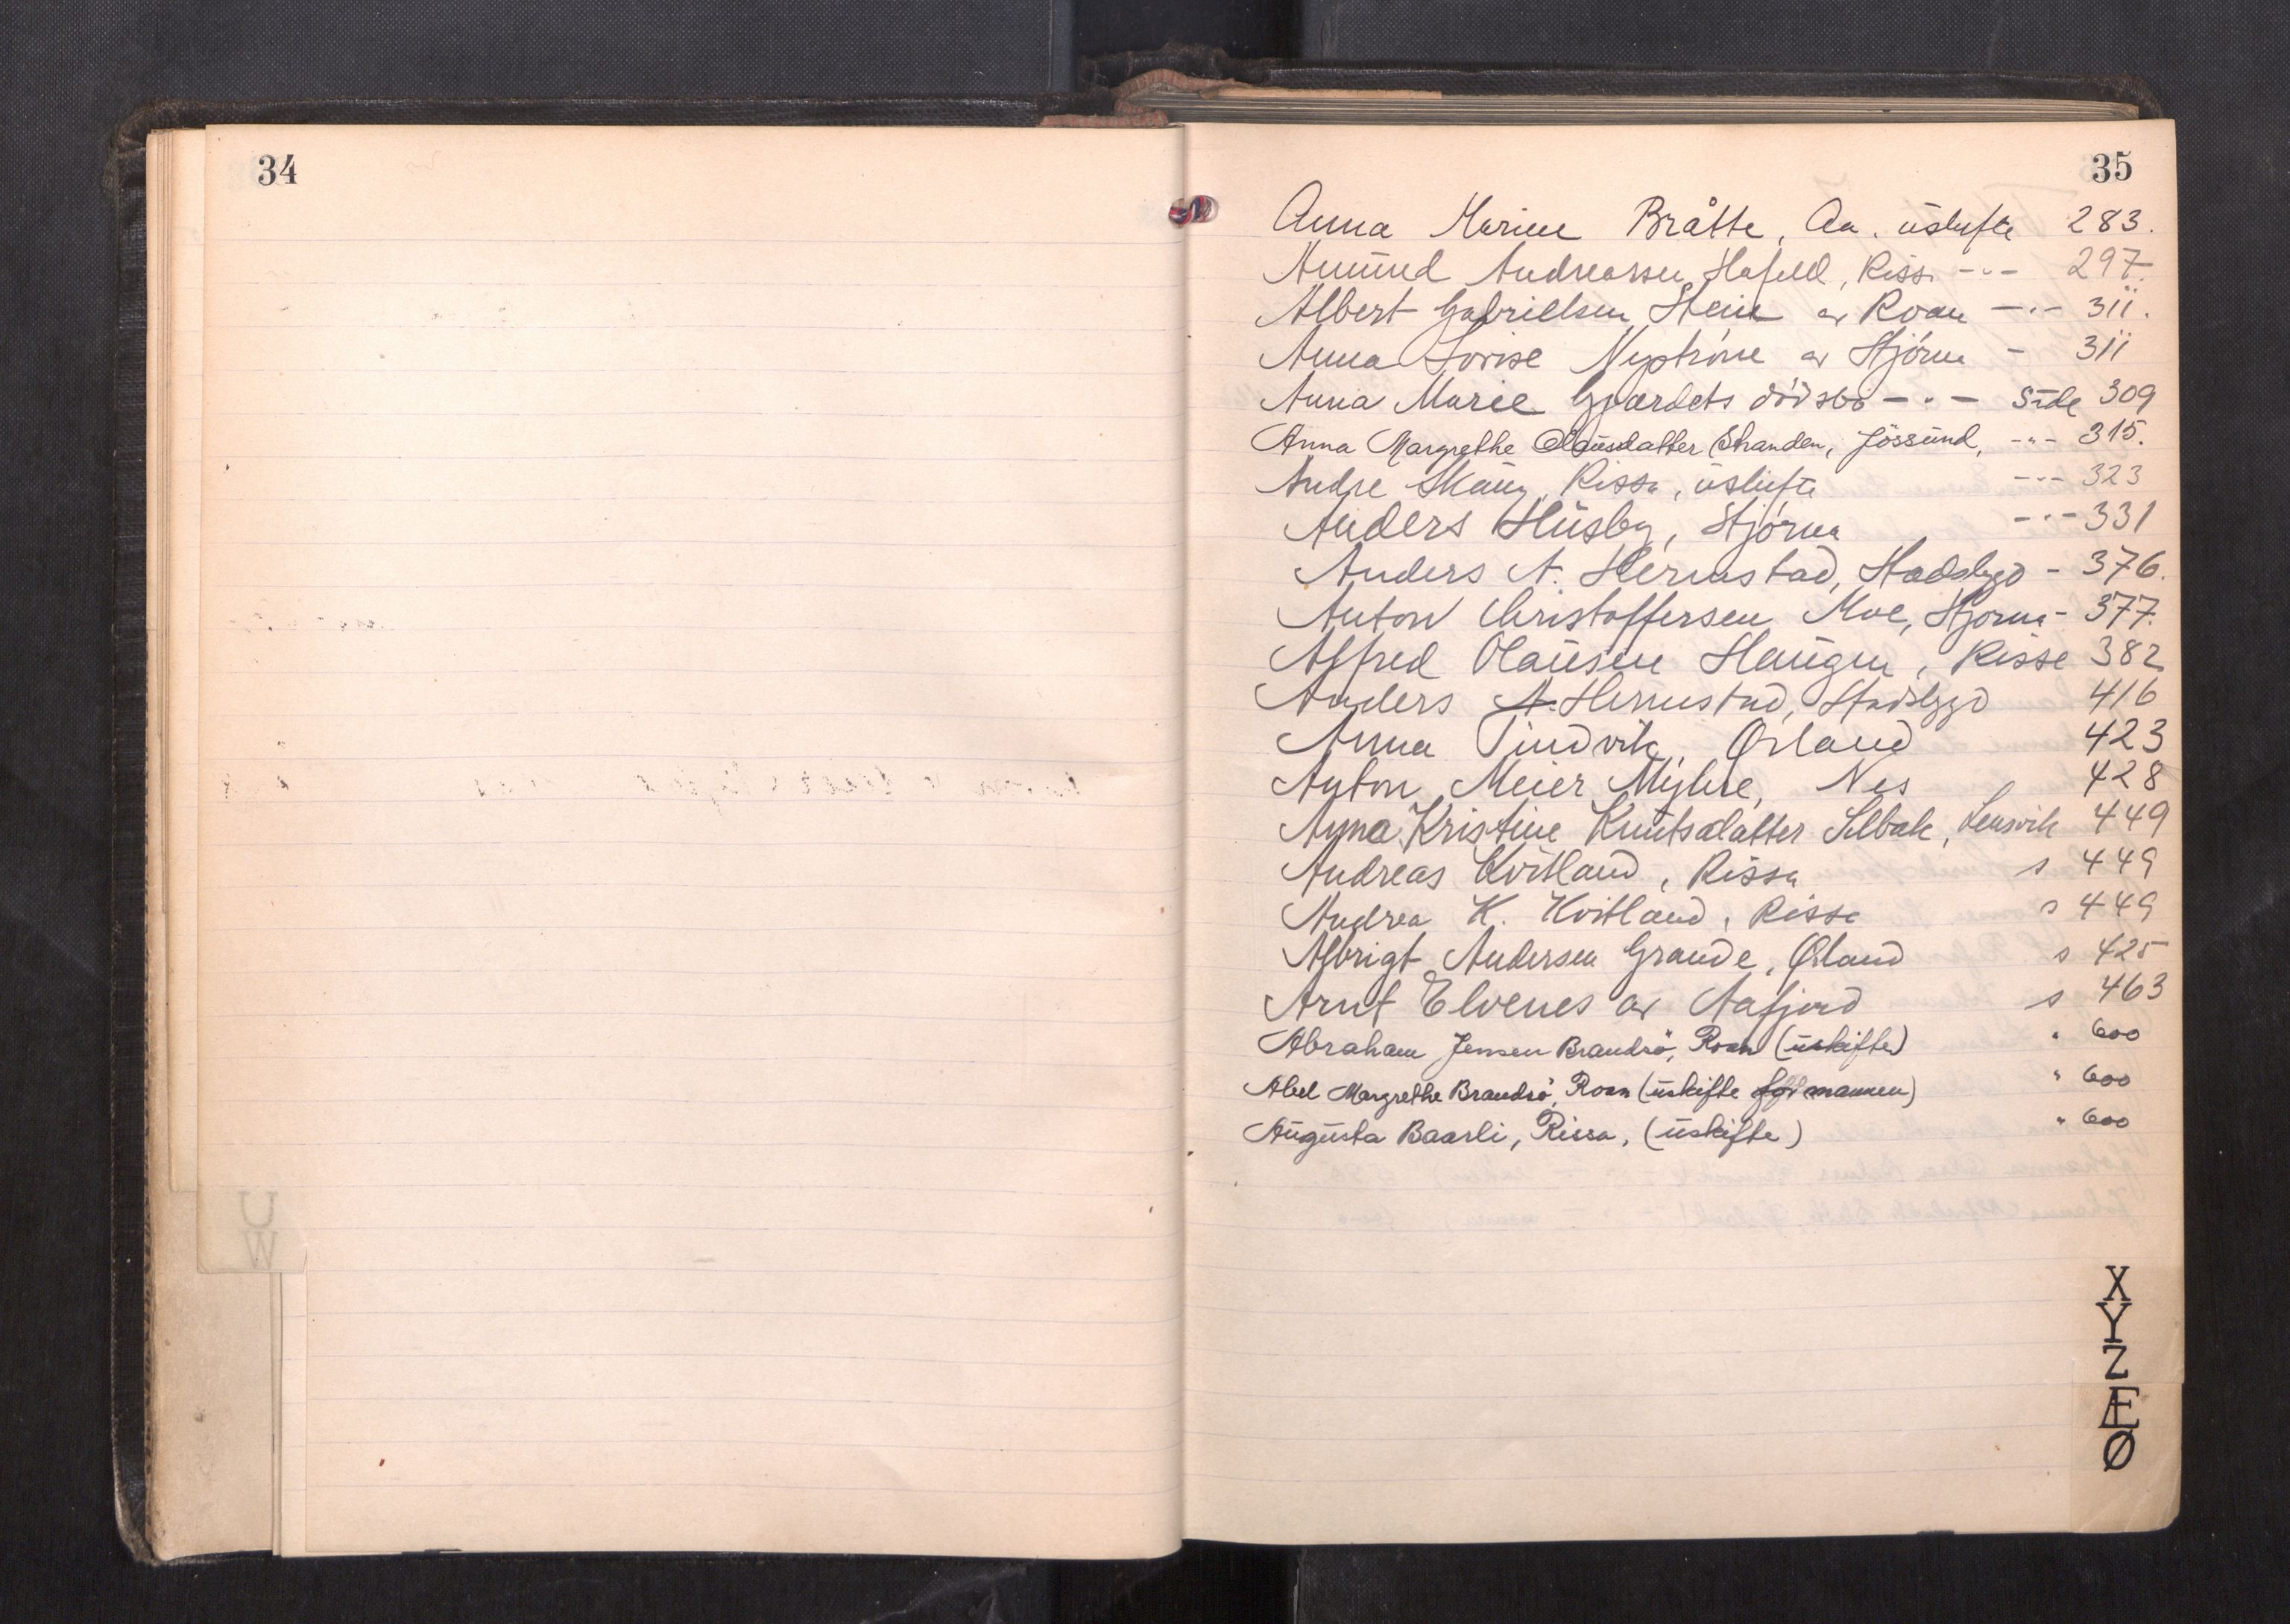 34
35
Anna Marine Bråtte, Aa. uskifte 283.
Amund Andreassen Hafeld, Rissa -"- 297.
Albert Gabrielsen Stein av Roan -"- 311.
Anna Lovise Nyptrøne av Stjørna - 311
Anna Marie Gjærdets dødsbo -"- side 309
Anna Margrethe Olausdatter Stranden, Jössund, -"- 315.
Andre Skaug, Rissa, uskifte -"- 323
Anders Husby, Stjørna -"- 331
Anders A. Hermstad, Stadsbygd - 376.
Anton Christoffersen Moe, Stjørna - 377.
Alfred Olausen Haugen, Rissa 382
Anders A. Hermstad, Stadsbygd 416
Anna Tindvik, Ørland 423
Anton Meier Myhre, Nes 428
Anna Kristine Knutsdatter Selbak, Lensvik 449
Andreas Kvitland, Rissa s 449
Andrea K. Kvitland, Rissa s 449
Albrigt Andersen Grande, Ørland s 425
Arnt Elvenes av Aafjord s 463
Abraham Jensen Brandsø, Roan (uskifte) " 600
Abel Margrethe Brandsø, Roan (uskifte mannen) " 600
Augusta Baarli, Rissa, (uskifte) " 600
U
W
X
Y
Z
Æ
Ø